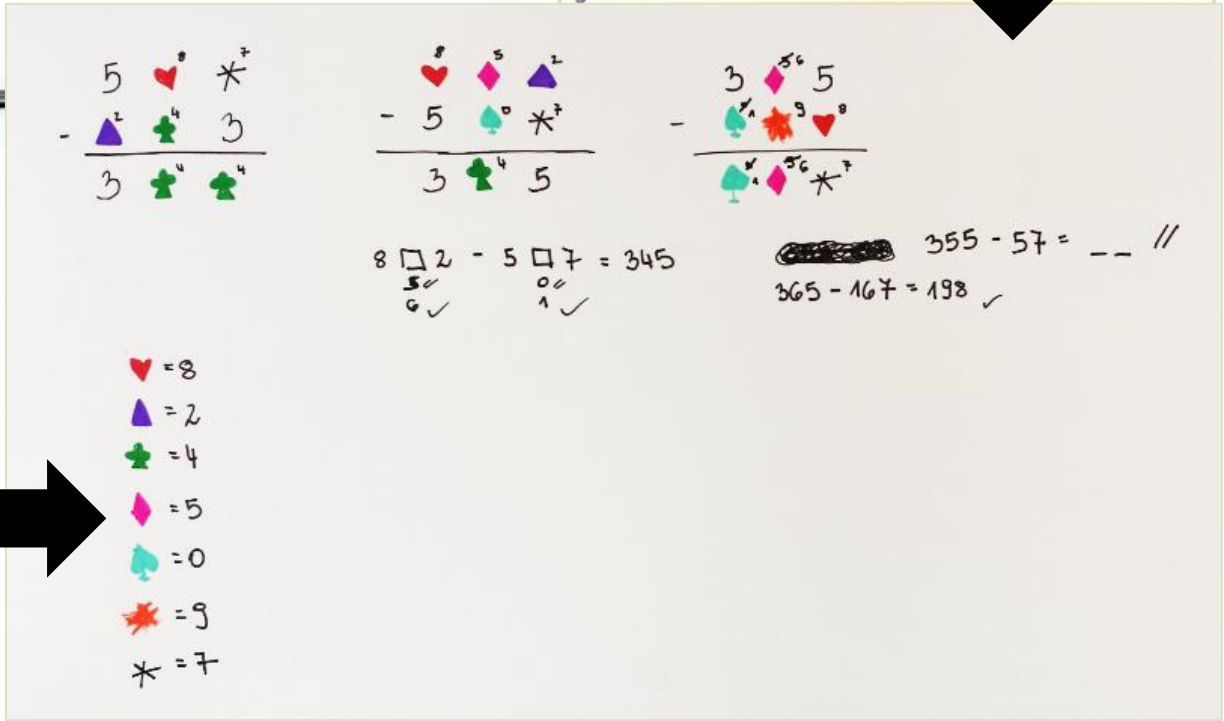 5 ♥⁸ *⁷
- ▲² ♣⁴ 3
3 ♣⁴ ♣⁴
♥⁸ ♦⁵ ▲²
- 5 ♠⁰ *⁷
3 ♣⁴ 5
3 ♦⁶ 5
- ♠¹ ✹⁹ ♥⁸
♠¹ ♦⁶ *⁷
8 □ 2 - 5 □ 7 = 345
5 // 0 //
6 ✓ 1 ✓
355 - 57 = _ _ //
365 - 167 = 198 ✓
♥ = 8
▲ = 2
♣ = 4
♦ = 5
♠ = 0
✹ = 9
* = 7